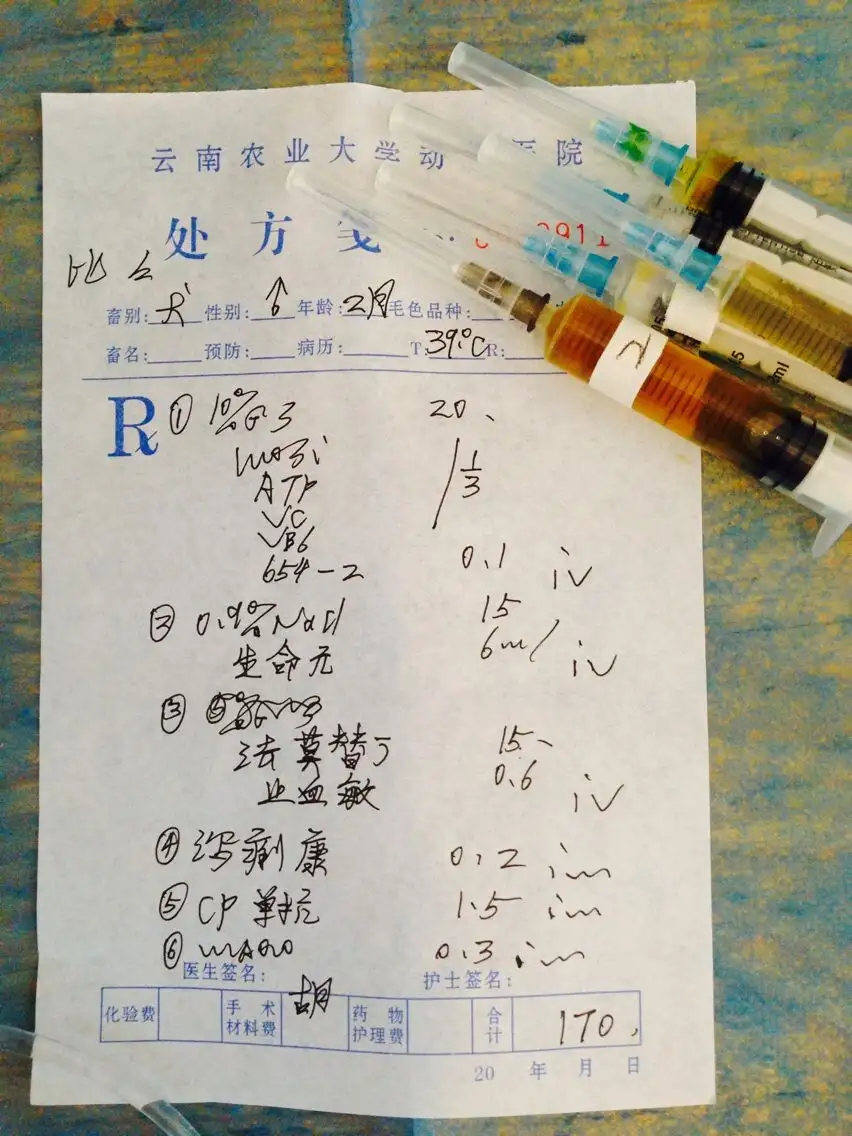 云南农业大学动 医院
处方笺 0911
畜别:犬 性别:♂ 年龄:2月 毛色品种:
畜名: 预防: 病历: T:39℃ R:
R ① 10% 20
ATP 1/3
VC
VB6
654-2 0.1 iv
② 0.9%NaCl 15
生命元 6ml iv
③
法莫替丁 15
止血敏 0.6 iv
④ 泻痢康 0.2 im
⑤ CP单抗 1.5 im
⑥ 0.3 im
医生签名: 胡 护士签名:
化验费 手术材料费 药物护理费 合计 170
20 年 月 日
2